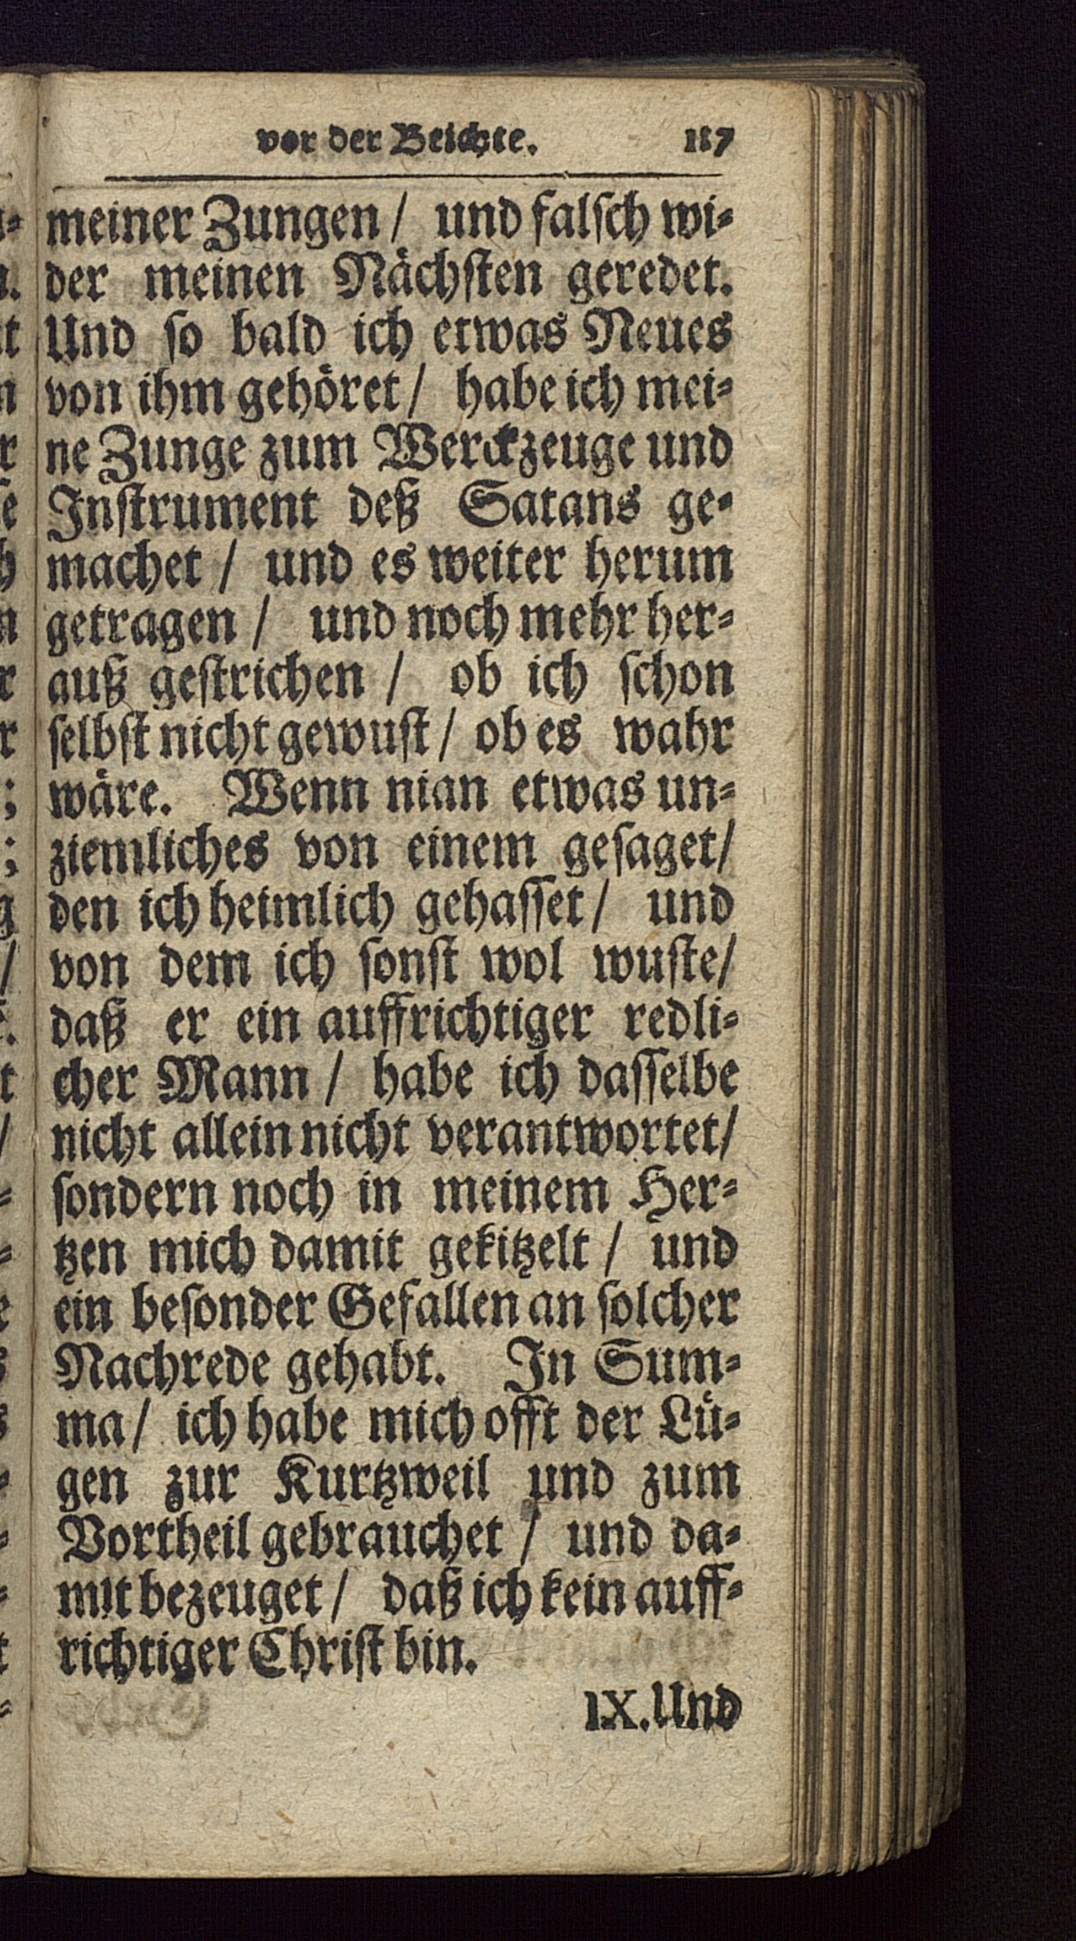 vor der Beichte. 117
meiner Zungen / und falſch wi-
der meinen Nächſten geredet.
Und ſo bald ich etwas Neues
von ihm gehöret / habe ich mei-
ne Zunge zum Werckzeuge und
Inſtrument deß Satans ge-
machet / und es weiter herum
getragen / und noch mehr her-
auß geſtrichen / ob ich ſchon
ſelbſt nicht gewuſt / ob es wahr
wäre. Wenn nian etwas un-
ziemliches von einem geſaget/
den ich heimlich gehaſſet / und
von dem ich ſonſt wol wuſte/
daß er ein auffrichtiger redli-
cher Mann / habe ich daſſelbe
nicht allein nicht verantwortet/
ſondern noch in meinem Her-
tzen mich damit gekitzelt / und
ein beſonder Gefallen an ſolcher
Nachrede gehabt. In Sum-
ma / ich habe mich offt der Lü-
gen zur Kurtzweil und zum
Vortheil gebrauchet / und da-
mit bezeuget / daß ich kein auff-
richtiger Chriſt bin.
IX. Und